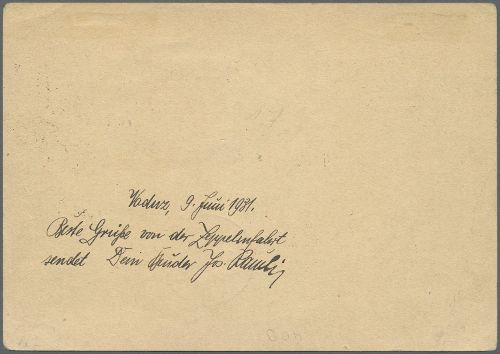 Vaduz, 9. Juni 1931.
Beste Grüße von der Zeppelinfahrt
sendet Dein Bruder Jos.